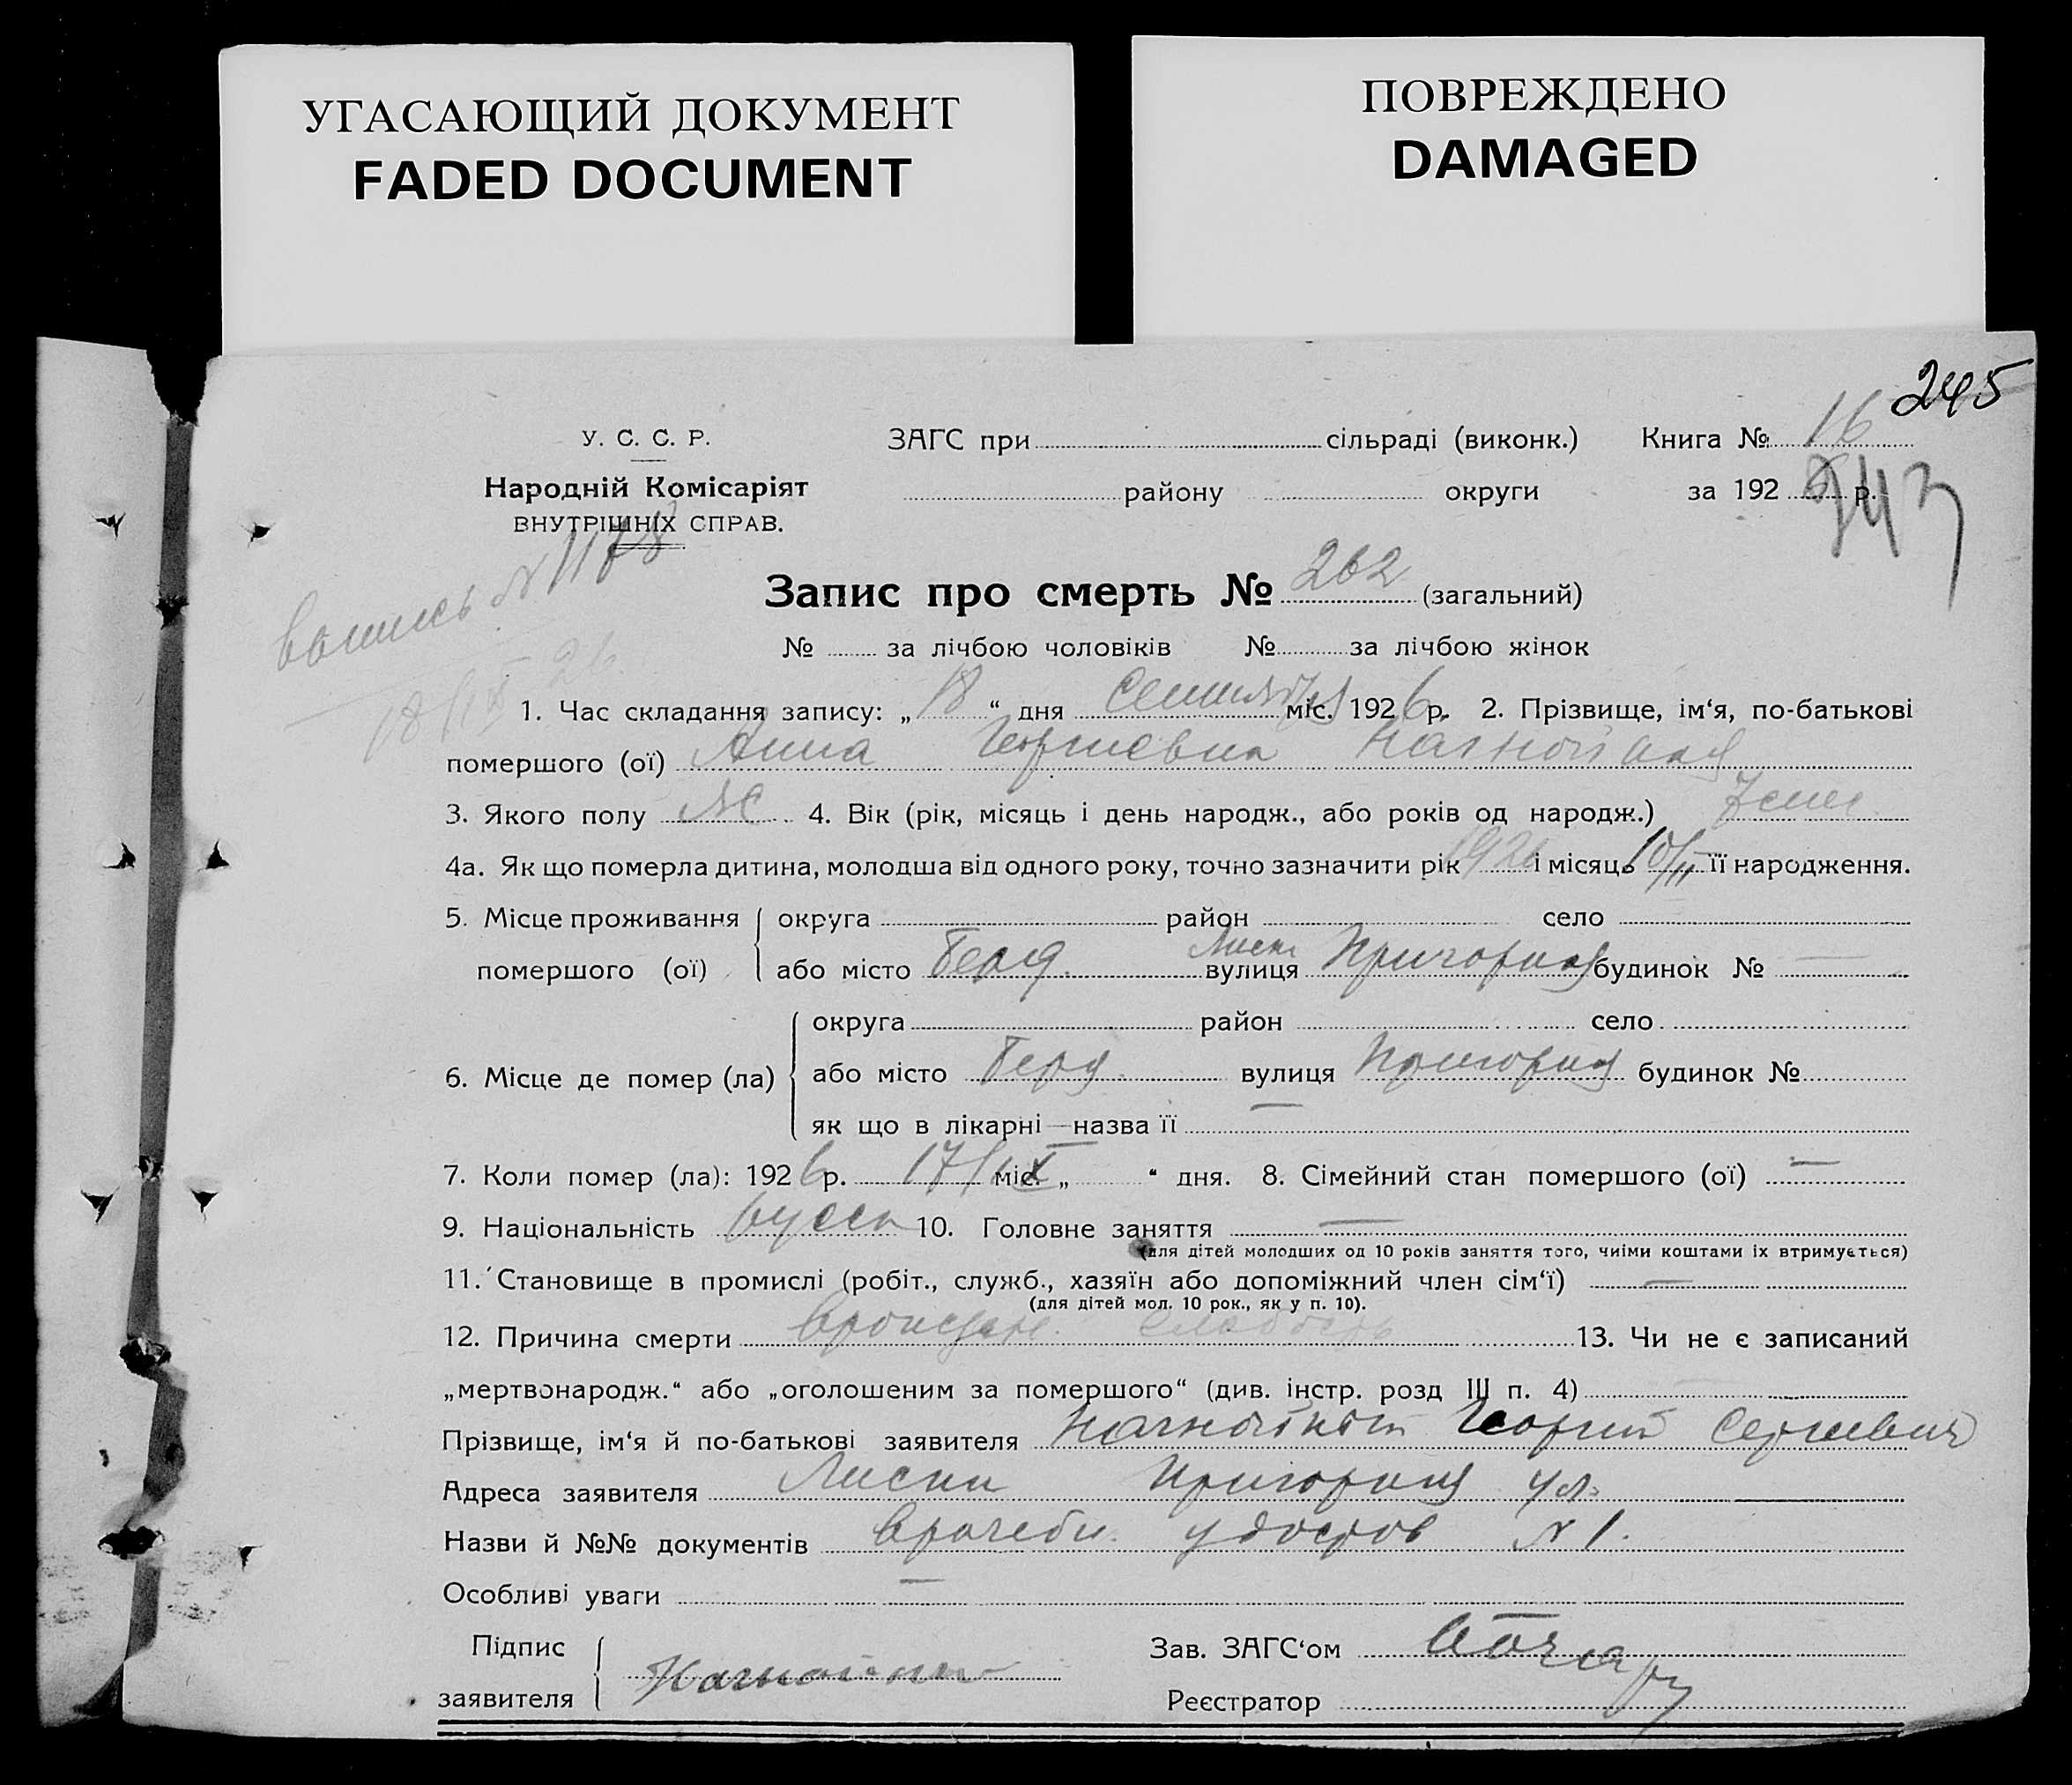 УГАСАЮЩИЙ ДОКУМЕНТ
FADED DOCUMENT
ПОВРЕЖДЕНО
DAMAGED
245
У. С. С. Р.
ЗАГС при сільраді (виконк.) Книга № 16
Народній Комісаріят
району округи за 192 р.
ВНУТРІШНІХ СПРАВ.
Запис про смерть № 262 (загальний)
№ за лічбою чоловіків № за лічбою жінок
18/IX 26
1. Час складання запису: „ 18 “ дня Сентября міс. 1926 р. 2. Прізвище, ім‘я, по-батькові
помершого (ої) Анна Георгиевна
3. Якого полу ж 4. Вік (рік, місяць і день народж., або років од народж.)
4а. Як що померла дитина, молодша від одного року, точно зазначити рік 1926 і місяць 10/II її народження.
5. Місце проживання округа район село
помершого (ої) або місто Берд. Лиски вулиця Пригорная будинок № —
округа район село
6. Місце де помер (ла) або місто Берд. вулиця Пригорная будинок №
як що в лікарні—назва її —
7. Коли помер (ла): 1926 р. 17/IX міс. „ “ дня. 8. Сімейний стан помершого (ої) —
9. Національність 10. Головне заняття —
(для дітей молодших од 10 років заняття того, чиїми коштами їх втримується)
11. Становище в промислі (робіт., служб., хазяїн або допоміжний член сім‘ї) —
(для дітей мол. 10 рок., як у п. 10).
12. Причина смерти врожден. слабость 13. Чи не є записаний
„мертвонародж.“ або „оголошеним за помершого“ (див. інстр. розд III п. 4)
Прізвище, ім‘я й по-батькові заявителя Георгий Сергеевич
Адреса заявителя Лиски Пригорная ул.
Назви й №№ документів врачебн. удостов N 1.
Особливі уваги —
Підпис
Зав. ЗАГС‘ом
заявителя
Реєстратор